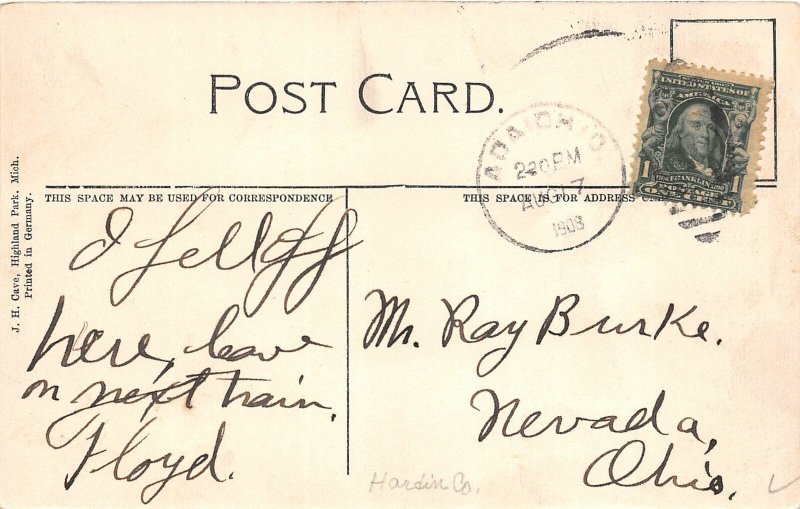 POST CARD.
UNITED STATES OF
AMERICA
1
FRANKLIN
POSTAGE
ONE CENT
ADA, OHIO.
2 PM
AUG 17
1908
THIS SPACE MAY BE USED FOR CORRESPONDENCE
THIS SPACE IS FOR ADDRESS
J. H. Cave, Highland Park, Mich.
Printed in Germany.
I fell off
here, leave
on next train.
Floyd.
Mr. Ray Burke.
Nevada,
Ohio.
Hardin Co.